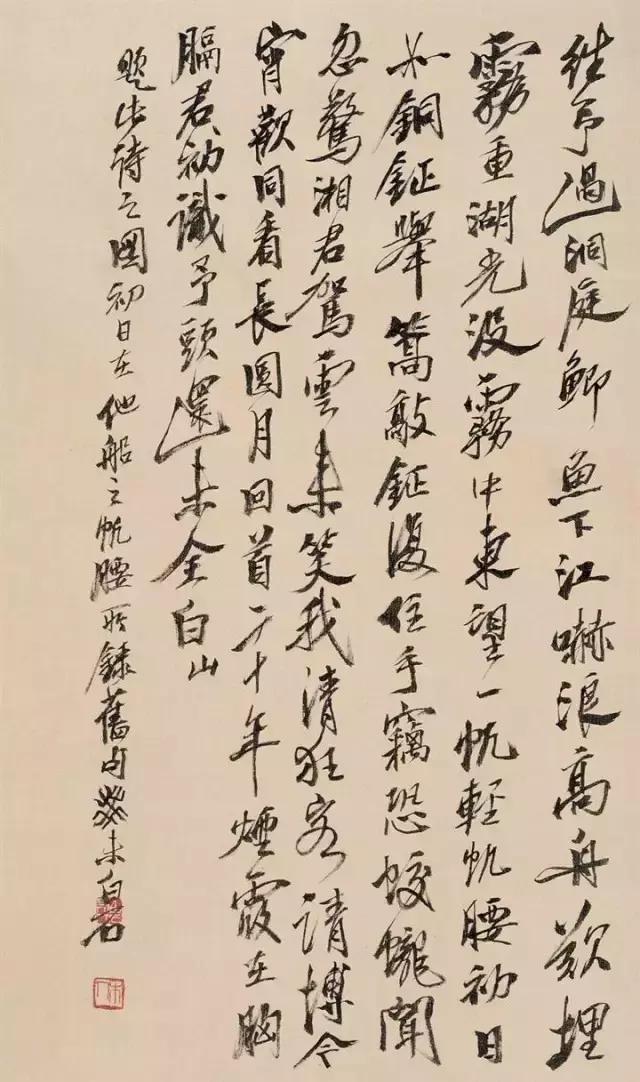 往予過洞庭鯽魚下江嚇浪高舟欲埋
霧重湖光沒霧中東望一帆輕帆腰初日
如銅鉦舉篙敲鉦復住手竊恐蛟龍聞
忽驚湘君駕雲來笑我清狂客請博今
宵歡同看長圓月回首二十年煙霞在胸
膈君初識予頭還未全白山
題出詩之圖初日在他船之帆腰所錄舊句癸未白石